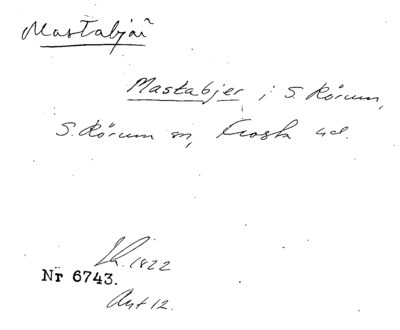 Mastabjär
Mastabjer i S. Rörum,
S. Rörum sn, Frosta hd.
Lk. 1822
Nr 6743.
Avt 12.